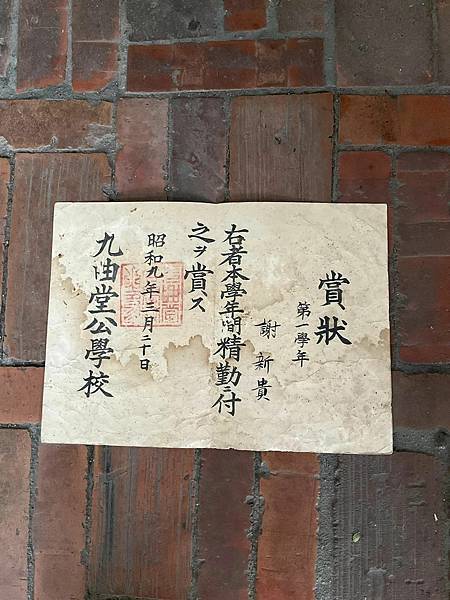 賞狀
第一學年
謝新貴
右者本學年間精勤ニ付
之ヲ賞ス
昭和九年三月二十日
九曲堂公學校